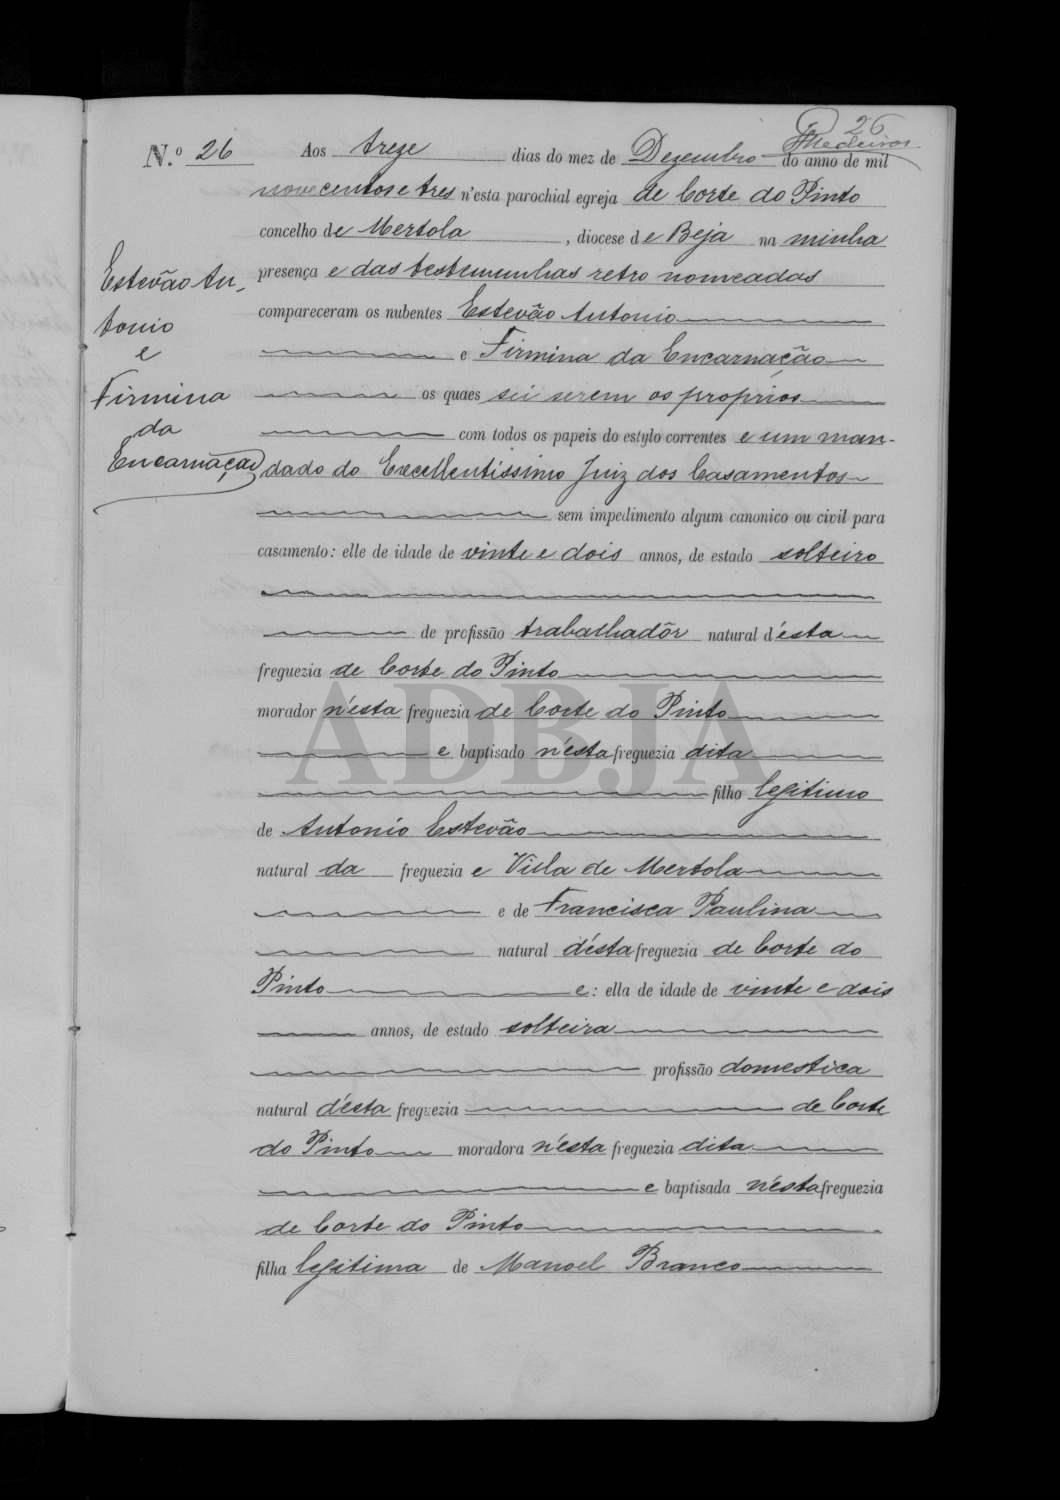 26
Medeiros
N.º 26
Aos treze dias do mez de Dezembro do anno de mil
novecentos e tres n'esta parochial egreja de Corte do Pinto
concelho de Mertola, diocese de Beja na minha
presença e das testemunhas retro nomeadas
compareceram os nubentes Estevão Antonio
e Firmina da Encarnação
os quaes sei serem os proprios
com todos os papeis do estylo correntes e um man-
dado do Excellentissimo Juiz dos Casamentos
sem impedimento algum canonico ou civil para
casamento: elle de idade de vinte e dois annos, de estado solteiro
de profissão trabalhadôr natural d'ésta
freguezia de Corte do Pinto
morador n'ésta freguezia de Corte do Pinto
e baptisado n'ésta freguezia dita
filho legitimo
de Antonio Estevão
natural da freguezia e Villa de Mertola
e de Francisca Paulina
natural d'ésta freguezia de Corte do
Pinto e: ella de idade de vinte e dois
annos, de estado solteira
profissão domestica
natural d'ésta freguezia de Corte
do Pinto moradora n'ésta freguezia dita
e baptisada n'ésta freguezia
de Corte do Pinto
filha legitima de Manoel Branco
Estevão An-
tonio
e
Firmina
da
Encarnação
ADBJA